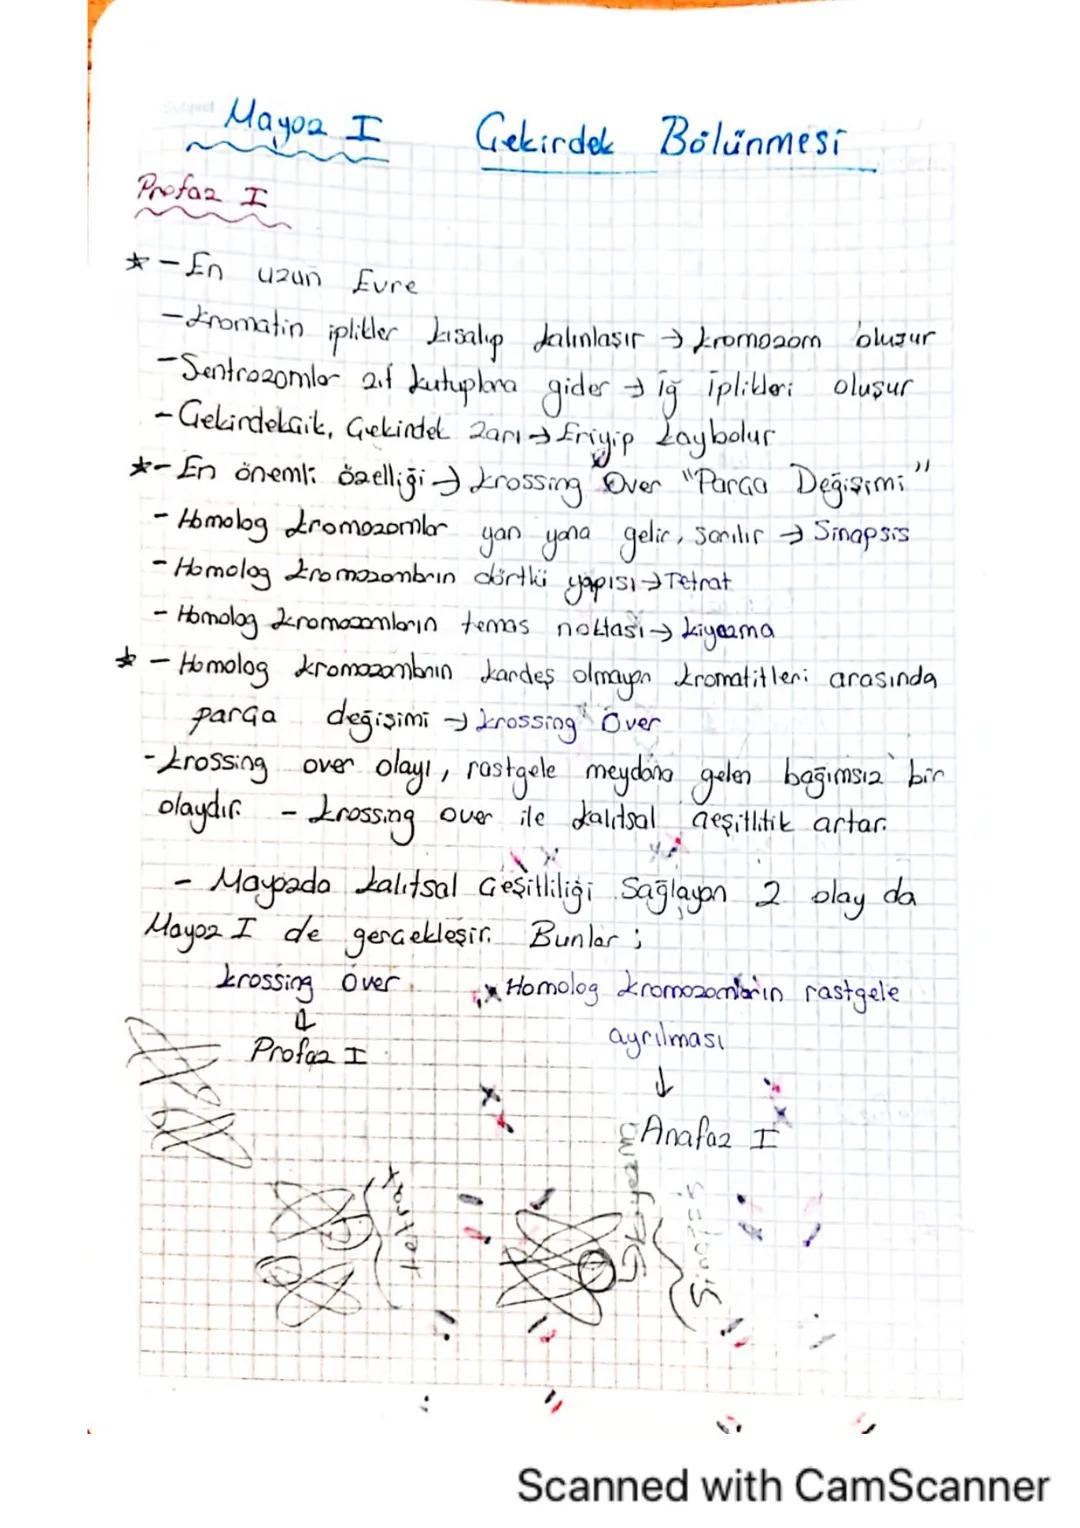 Mayoz I Çekirdek Bölünmesi
Profaz I
* - En uzun Evre
- Kromatin iplikler kısalıp kalınlaşır → kromozom oluşur
- Sentrozomlar zıt kutuplara gider → iğ iplikleri oluşur
- Çekirdekçik, Çekirdek zarı → Eriyip kaybolur
* - En önemli özelliği → krossing Over "Parça Değişimi"
- Homolog kromozomlar yan yana gelir, sarılır → Sinapsis
- Homolog kromozomların dörtlü yapısı → Tetrat
- Homolog kromozomların temas noktası → kiyazma
* - Homolog kromozomların kardeş olmayan kromatitleri arasında
parça değişimi → krossing Over
- krossing over olayı, rastgele meydana gelen bağımsız bir
olaydır. - krossing over ile kalıtsal çeşitlitik artar.
- Mayozda kalıtsal Çeşitliliği Sağlayan 2 olay da
Mayoz I de gerçekleşir. Bunlar ;
krossing över * Homolog kromozomların rastgele
↓ ayrılması
Profaz I ↓
Anafaz I
tetrat
kiyazma
Sinapsis
Scanned with CamScanner